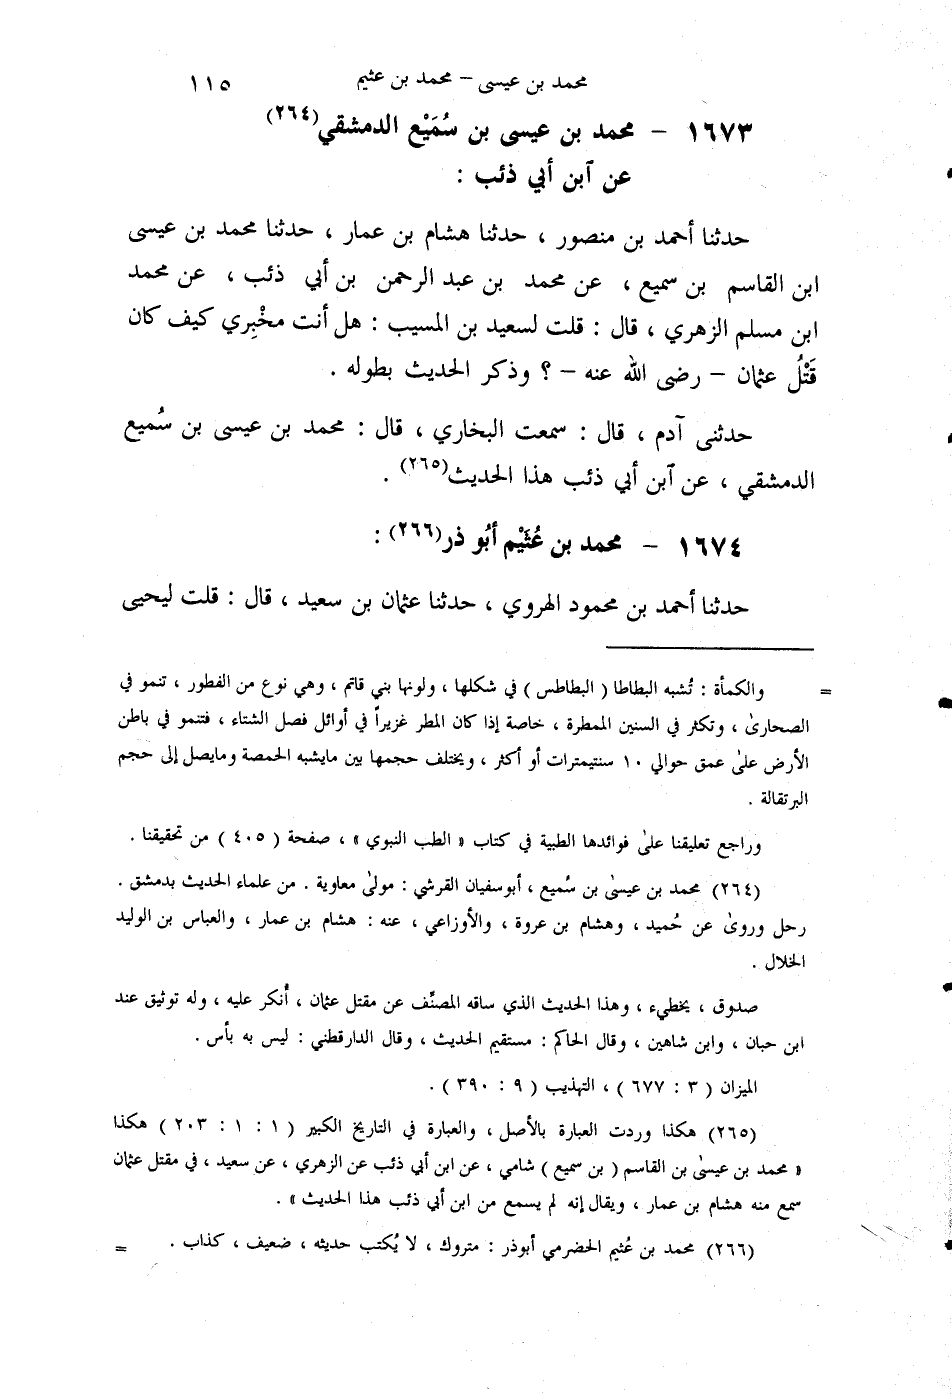 محمد بن عيسى – محمد بن عثيم ١١٥
١٦٧٣ – محمد بن عيسى بن سُمَيْع الدمشقي(٢٦٤)
عن آبن أبي ذئب :
حدثنا أحمد بن منصور ، حدثنا هشام بن عمار ، حدثنا محمد بن عيسى
ابن القاسم بن سميع ، عن محمد بن عبد الرحمن بن أبي ذئب ، عن محمد
ابن مسلم الزهري ، قال : قلت لسعيد بن المسيب : هل أنت مخْبِري كيف كان
قَتْلُ عثمان – رضى الله عنه – ؟ وذكر الحديث بطوله .
حدثنى آدم ، قال : سمعت البخاري ، قال : محمد بن عيسى بن سُميع
الدمشقي ، عن آبن أبي ذئب هذا الحديث(٢٦٥) .
١٦٧٤ – محمد بن عُثَيْم أبُو ذر(٢٦٦) :
حدثنا أحمد بن محمود الهروي ، حدثنا عثمان بن سعيد ، قال : قلت ليحيى
= والكمأة : تُشبه البطاطا ( البطاطس ) في شكلها ، ولونها بني قاتم ، وهي نوع من الفطور ، تنمو في
الصحارىٰ ، وتكثر في السنين الممطرة ، خاصة إذا كان المطر غزيراً في أوائل فصل الشتاء ، فتنمو في باطن
الأرض علىٰ عمق حوالي ١٠ سنتيمترات أو أكثر ، ويختلف حجمها بين مايشبه الحمصة ومايصل إلى حجم
البرتقالة .
وراجع تعليقنا علىٰ فوائدها الطبية في كتاب « الطب النبوي » ، صفحة ( ٤٠٥ ) من تحقيقنا .
(٢٦٤) محمد بن عيسىٰ بن سُميع ، أبوسفيان القرشي : مولىٰ معاوية . من علماء الحديث بدمشق .
رحل وروىٰ عن حُميد ، وهشام بن عروة ، والأوزاعي ، عنه : هشام بن عمار ، والعباس بن الوليد
الخلال .
صدوق ، يخطيء ، وهذا الحديث الذي ساقه المصنِّف عن مقتل عثمان ، أُنكر عليه ، وله توثيق عند
ابن حبان ، وابن شاهين ، وقال الحاكم : مستقيم الحديث ، وقال الدارقطني : ليس به بأس .
الميزان ( ٣ : ٦٧٧ ) ، التهذيب ( ٩ : ٣٩٠ ) .
(٢٦٥) هكذا وردت العبارة بالأصل ، والعبارة في التاريخ الكبير ( ١ : ١ : ٢٠٣ ) هكذا
« محمد بن عيسىٰ بن القاسم ( بن سميع ) شامي ، عن ابن أبي ذئب عن الزهري ، عن سعيد ، في مقتل عثمان
سمع منه هشام بن عمار ، ويقال إنه لم يسمع من ابن أبي ذئب هذا الحديث » .
(٢٦٦) محمد بن عُثيم الحضرمي أبوذر : متروك ، لا يُكتب حديثه ، ضعيف ، كذاب . =